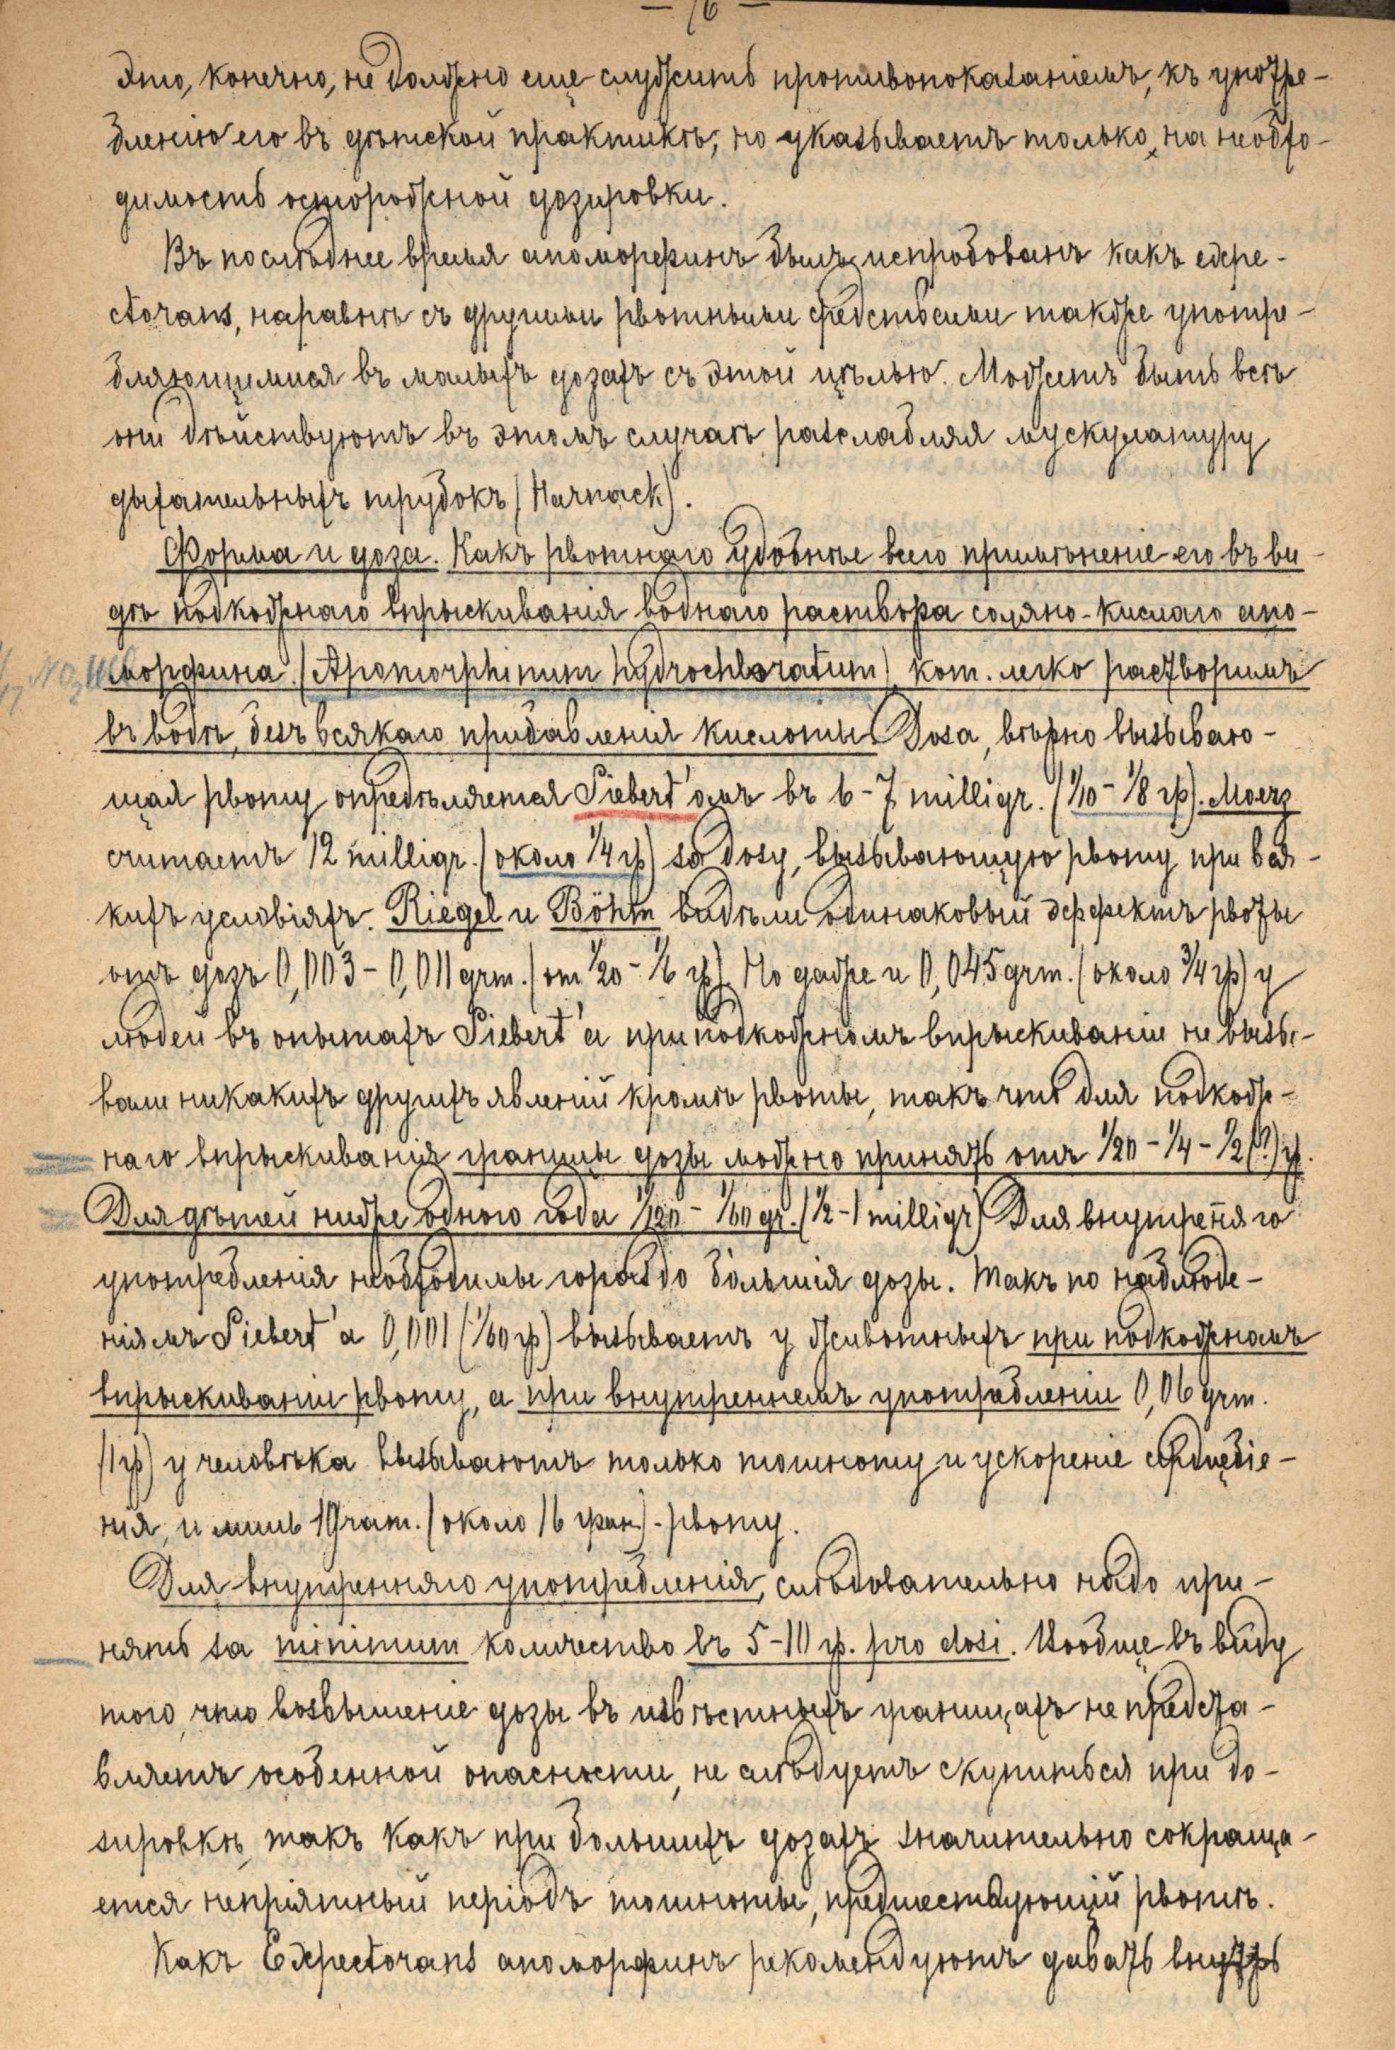 — 76 —
Это, конечно, не должно еще служить противопоказаніемъ, къ употре-
бленію его въ дѣтской практикѣ, но указываетъ только, на необхо-
димость осторожной дозировки.
Въ послѣднее время апоморфинъ былъ испробованъ какъ expe-
ctorans, наравнѣ съ другими рвотными средствами также употре-
бляющимися въ малыхъ дозахъ съ этой цѣлью. Можетъ быть всѣ
они дѣйствуютъ въ этомъ случаѣ разслабляя мускулатуру
дыхательныхъ трубокъ (Harnack).
Форма и доза. Какъ рвотнаго удобнѣе всего примѣненіе его въ ви-
дѣ подкожнаго впрыскиванія воднаго раствора соляно-кислаго апо-
морфина (Apomorphinum hydrochloratum), кот. легко растворимъ
въ водѣ, безъ всякаго прибавленія кислоты. Доза, вѣрно вызываю-
щая рвоту опредѣляется Siebert'омъ въ 6-7 milligr. (1/10 - 1/8 гр). Moerz
считаетъ 12 milligr. (около 1/4 гр) за дозу, вызывающую рвоту при вся-
кихъ условіяхъ. Riegel и Böhm видѣли одинаковый эффектъ рвоты
отъ дозъ 0,003 - 0,011 grm. (от 1/20 - 1/6 гр). Но даже и 0,045 grm. (около 3/4 гр) у
людей въ опытахъ Siebert'а при подкожномъ впрыскиваніи не вызы-
вали никакихъ другихъ явленій кромѣ рвоты, такъ что для подкож-
наго впрыскиванія границы дозы можно принять отъ 1/20 - 1/4 - 1/2 (?) гр.
Для дѣтей ниже одного года 1/120 - 1/60 gr. (1/2 - 1 milligr) Для внутреняго
употребленія необходимы гораздо большія дозы. Такъ по наблюде-
ніямъ Siebert'а 0,001 (1/60 гр) вызываетъ у животныхъ при подкожномъ
впрыскиваніи рвоту, а при внутреннемъ употребленіи 0,06 grm.
(1 гр) у человѣка вызываютъ только тошноту и ускореніе сердцебіе-
нія, и лишь 1 Gram. (около 16 гран) - рвоту.
Для внутренняго употребленія, слѣдовательно надо при-
нять за minimum количество въ 5-10 гр. pro dosi. Вообще въ виду
того, что возвышеніе дозы въ извѣстныхъ границахъ не предста-
вляетъ особенной опасности, не слѣдуетъ скупиться при до-
зировкѣ, такъ какъ при большихъ дозахъ значительно сокраща-
ется непріятный періодъ тошноты, предшествующій рвотѣ.
Какъ Expectorans апоморфинъ рекомендуютъ давать внутрь